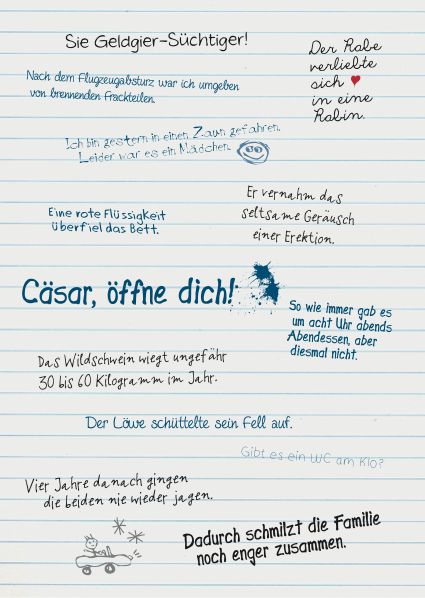 Sie Geldgier-Süchtiger!
Der Rabe
verliebte
sich
in eine
Rabin.
Nach dem Flugzeugabsturz war ich umgeben
von brennenden Frackteilen.
Ich bin gestern in einen Zaun gefahren.
Leider war es ein Mädchen.
Er vernahm das
seltsame Geräusch
einer Erektion.
Eine rote Flüssigkeit
überfiel das Bett.
Cäsar, öffne dich!
So wie immer gab es
um acht Uhr abends
Abendessen, aber
diesmal nicht.
Das Wildschwein wiegt ungefähr
30 bis 60 Kilogramm im Jahr.
Der Löwe schüttelte sein Fell auf.
Gibt es ein WC am Klo?
Vier Jahre danach gingen
die beiden nie wieder jagen.
Dadurch schmilzt die Familie
noch enger zusammen.